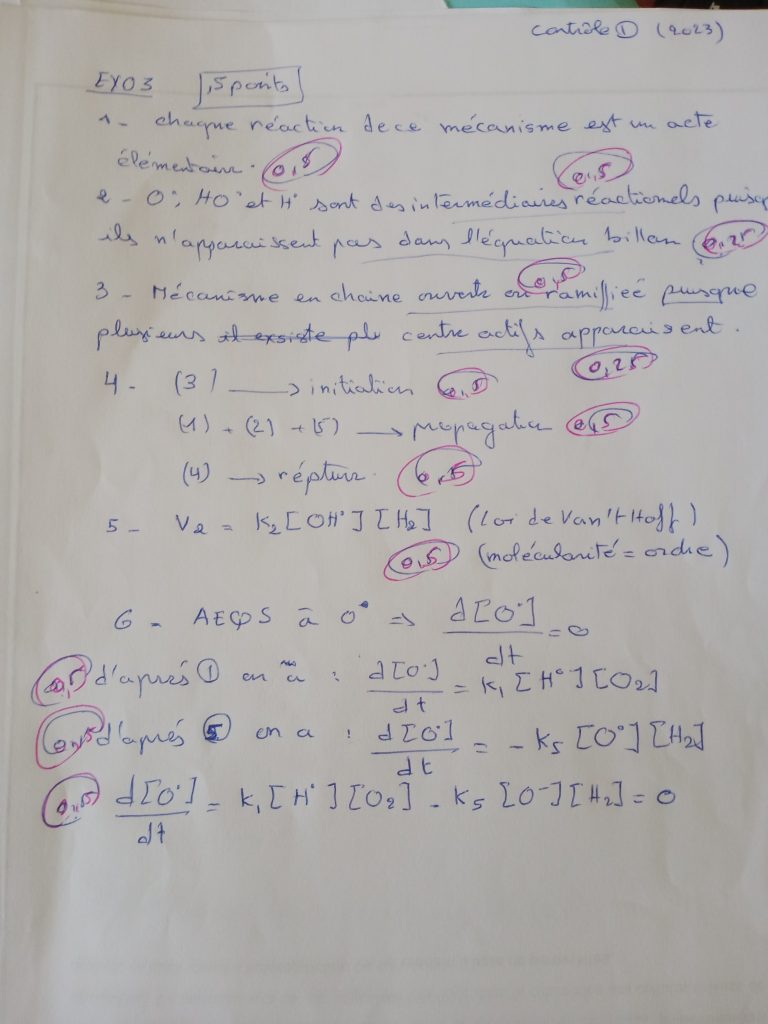 Contrôle ① (2023)
EXO3 ,5 points
1 - chaque réaction de ce mécanisme est un acte
élémentaire. 0,5
0,5
2 - O°, HO° et H° sont des intermédiaires réactionels puisq
ils n'apparaissent pas dans l'équation billan 0,25
0,5
3 - Mécanisme en chaine ouverte ou ramifieé puisque
plusieurs centre actifs apparaisent.
0,25
4 - (3) → initiation 0,5
(1) + (2) + (5) → propagation 0,5
(4) → répture. 0,5
5 - V2 = K2 [OH°] [H2] (Loi de Van't Hoff)
0,5 (molécularité = ordre)
6 - AEQS à O° => d[O°]/dt = 0
0,5 d'aprés ① on a : d[O°]/dt = K1 [H°] [O2]
d'aprés ⑤ on a : d[O°]/dt = - K5 [O°] [H2]
d[O°]/dt = K1 [H°] [O2] - K5 [O-] [H2] = 0